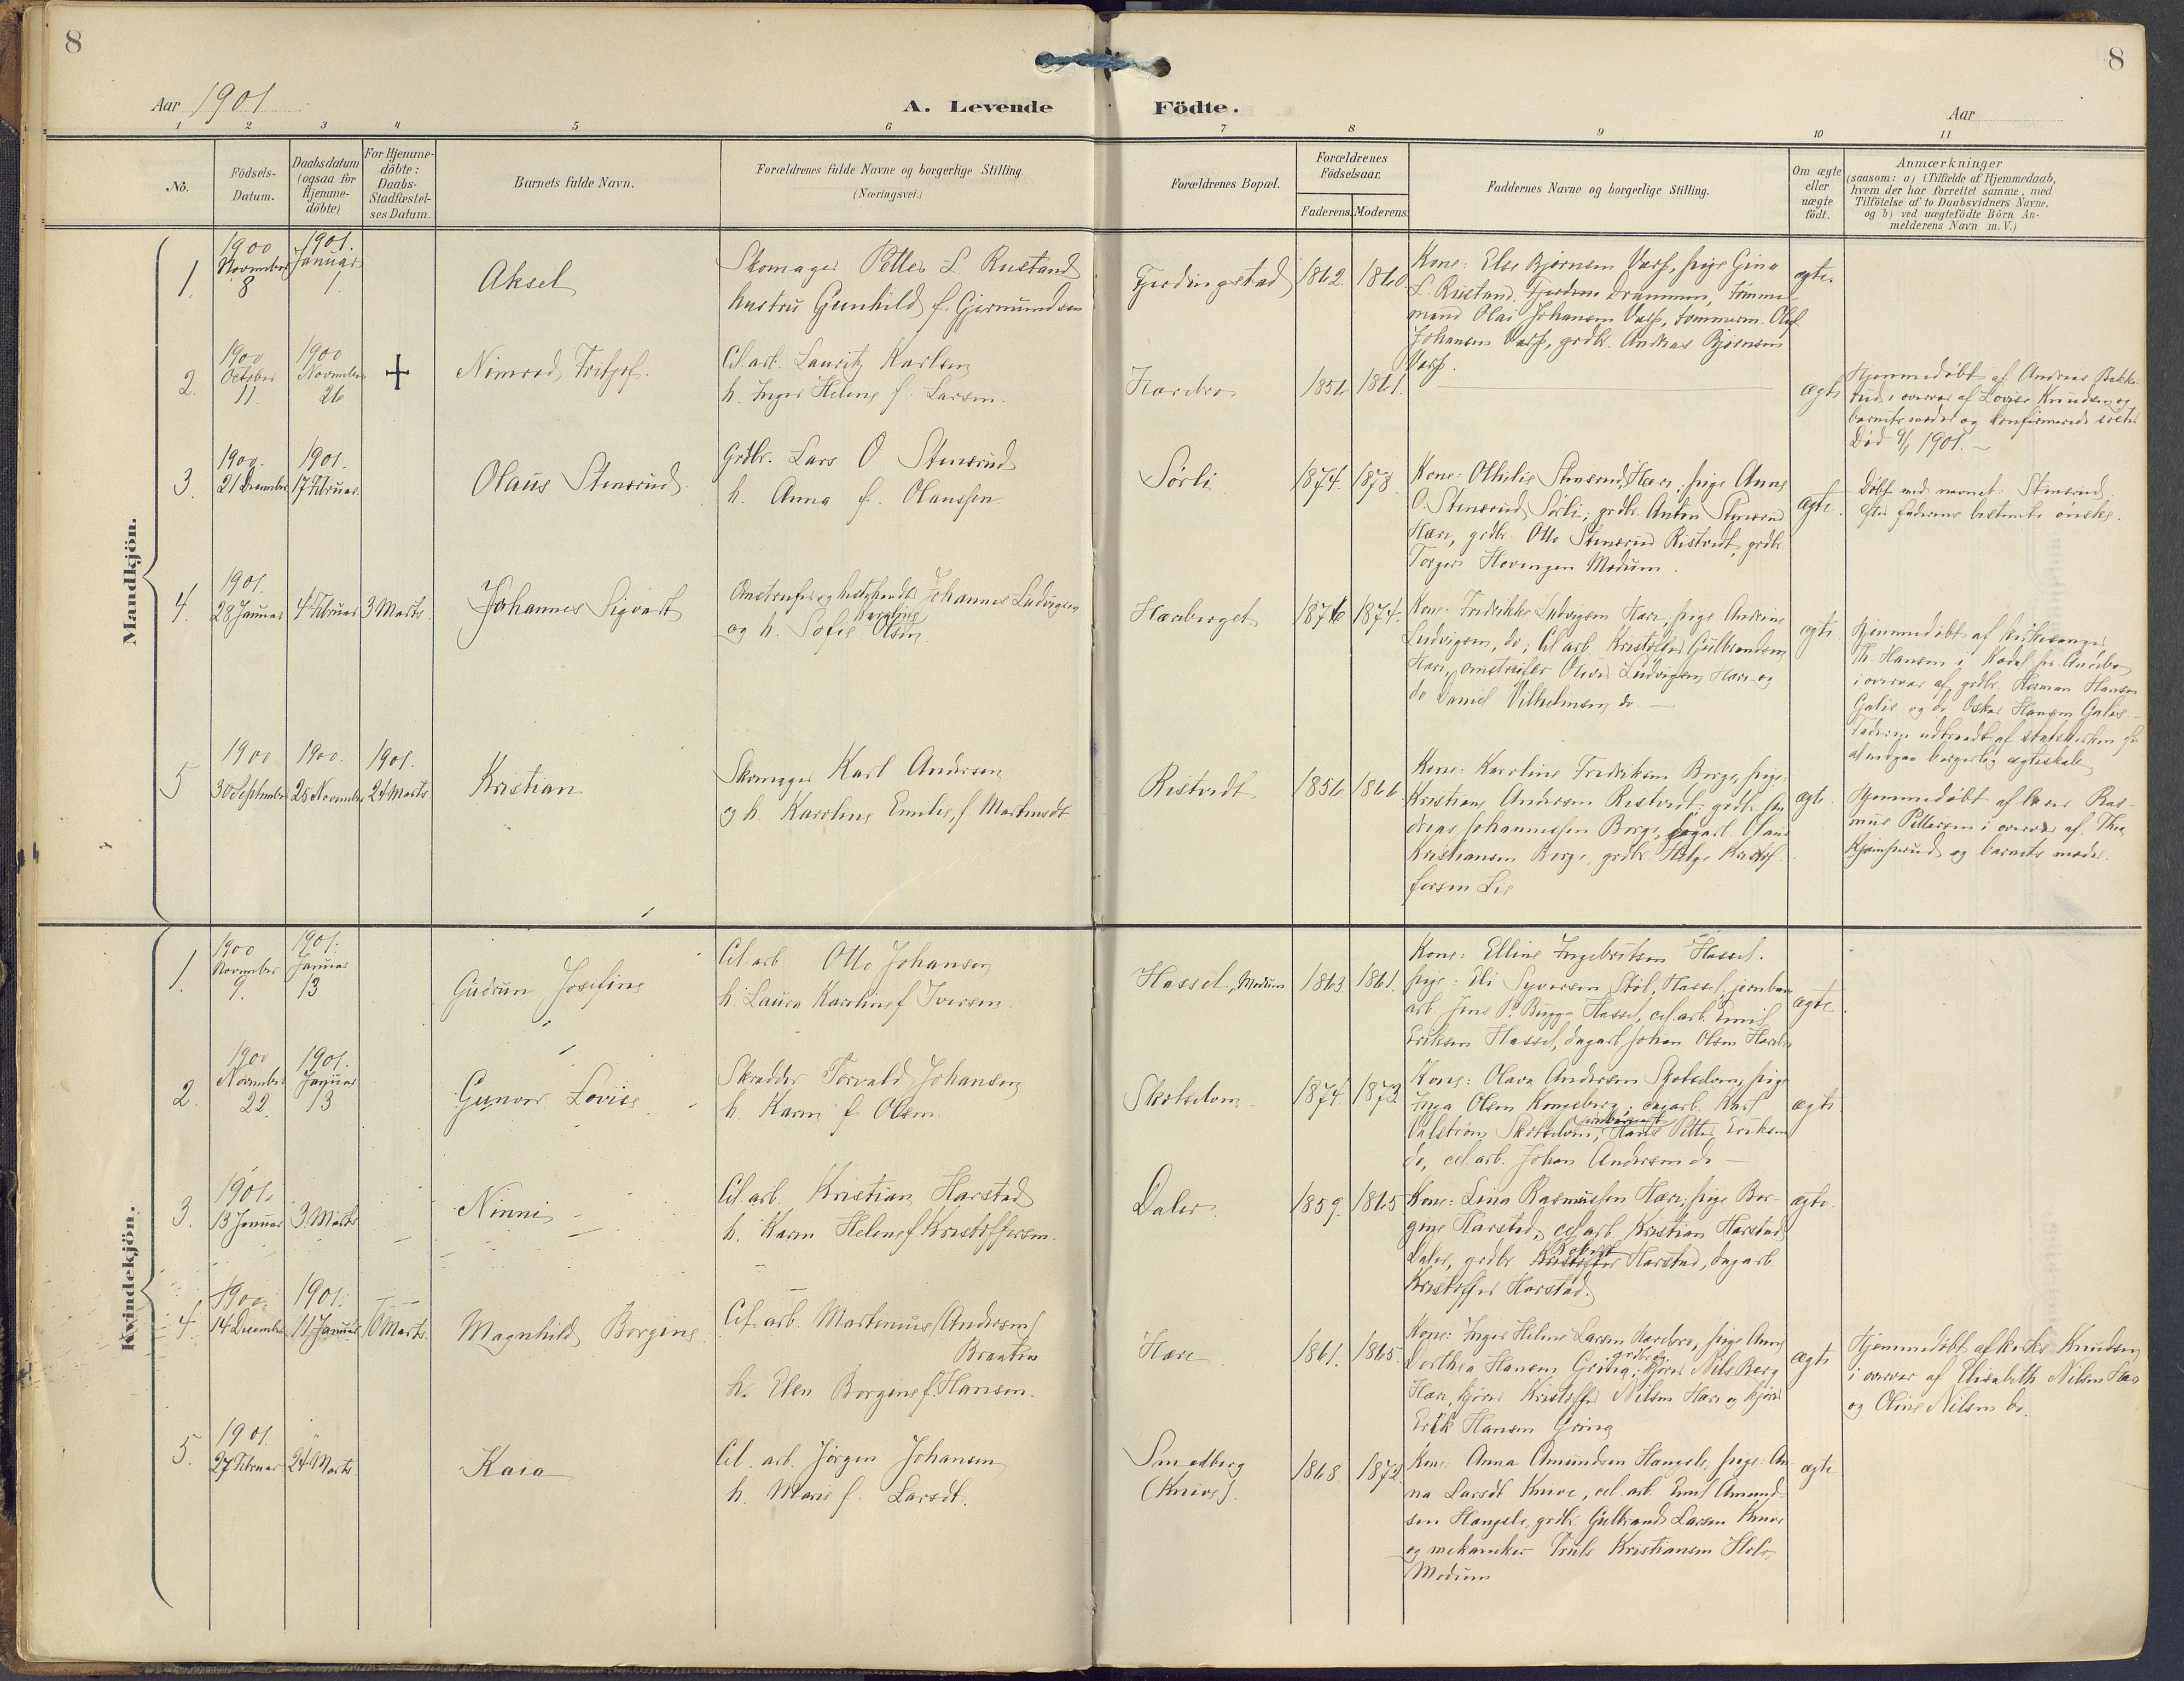 8
8
Aar 1901
A. Levende Födte.
Aar
1 2 3 4 5 6 7 8 9 10 11
No.
Födsels-
Datum.
Daabsdatum
(ogsaa for
Hjemme-
döbte)
For Hjemme-
döbte:
Daabs-
Stadfæstel-
ses Datum.
Barnets fulde Navn.
Forældrenes fulde Navne og borgerlige Stilling.
(Næringsvei.)
Forældrenes Bopæl.
Forældrenes
Födselsaar.
Faderens. Moderens.
Faddernes Navne og borgerlige Stilling.
Om ægte
eller
uægte
födt.
Anmærkninger
(saasom: a) i Tilfælde af Hjemmedaab,
hvem der har forrettet samme, med
Tilföielse af to Daabsvidners Navne,
og b) ved uægtefödte Börn An-
melderens Navn m. V.)
Mandkjön.
1.
1900
November
8
1901.
Januar
1.
Aksel
Skomager Petter L. Rustand
hustru Gunhild f. Gjermundsen
Fjerdingstad
1862. 1860.
Kone: Else Bjørnsen Varf, pige Gina
L. Rustand, Drammen, Tømmer-
mand Olai Johansen Varf, tømmerm. Oluf
Johansen Varf, grdbr. Andreas Bjørnsen
Varf.
ægte.
2.
1900
October
11.
1900
November
26
+
Nimrod Fritjof.
Cel. arb. Lauritz Karlsen
h. Inger Helene f. Larsen.
Harebro
1856 1861.
ægte
Hjemmedøbt af Andreas Bakke-
rud i overvær af Lovise Knudsen og
barnets moder og konfirmerede søster
Død 9/1 1901. —
3.
1900.
21 December
1901.
17 Februar
Olaus Stensrud.
Grdbr. Lars O Stensrud
h. Anna f. Olaussen.
Sørli
1874. 1873.
Kone: Othilie Stensrud, Hære, pige Anna
O. Stensrud Sørli; grdbr. Anton Stensrud
Hære, grdbr. Otto Stensrud Ristvedt, grdbr
Torger Hovengen Modum.
ægte.
Døbt med navnet: Stensrud
efter faderens bestemte ønske.
4.
1901.
28 Januar
4 Februar
3 Marts
Johannes Sigvart
Johannes Ludvigsen
og h. Sofie Karoline Olsen.
Hæreberget
1876 1874.
Kone: Fredrikke Ludvigsen Hære, pige Andrine
Ludvigsen, do; Cel arb. Kristoffer Gulbrandsen
Hære, Oliver Ludvigsen Hære og
do Daniel Vilhelmsen do. —
ægte.
Hjemmedøbt af kirkesanger
Th. Hansen i Kodal pr. Andebo
i overvær af grdbr. Herman Hansen
Galis og do Oskar Hansen Galis. —
Faderen udtraadt af statskirken for
at indgaa borgerlig ægteskab.
5
1900
30 September
1900.
25 November
1901.
24 Marts
Kristian
Skomager Karl Andersen
og h. Karoline Emilie f. Martinsdt
Ristvedt
1856 1866
Kone: Karoline Fredriksen Borge, pige:
Kristiane Andersen Ristvedt; grdbr. An-
dreas Johannessen Borge, dagarb. Olaus
Kristiansen Borge, grdbr. Helge Kristof-
fersen Lie
ægte.
Hjemmedøbt af lærer Ras-
mus Pettersen i overvær af Thea
Kjemperud og barnets moder.
Kvindekjön.
1.
1900
November
9.
1901.
Januar
13
Gudrun Josefine
Cel. arb Otto Johansen
h. Laura Karoline f. Iversen.
Hassel, Modum
1863. 1861.
Kone: Elline Ingebretsen Hassel.
pige: Eli Syversen Støl, Hassel, jernban
arb. Jens P. Bugge Hassel, cel. arb. Emil
Eriksen Hassel, dagarb Johan Olsen
ægte
2.
1900
November
22
1901.
Januar
13
Gunvor Lovise
Skrædder Torvald Johansen
h. Karen f. Olsen.
Skotselven
1874. 1873
Kone: Olava Andersen Skotselven, pige
Inga Olsen Kongsberg; dagarb. Karl
Dalstrøm Skotselven, Hans Petter Eriksen
do, cel. arb. Johan Andersen do —
ægte
3.
1901.
13 Januar
3 Marts
Ninni
Cel. arb. Kristian Harstad
h. Karen Helene f Kristoffersen.
Daler
1859. 1865
Kone: Lina Rasmussen Hære; pige Bor-
gine Harstad, cel. arb Kristian Harstad
Daler, grdbr Harstad, dagarb
Kristoffer Harstad.
ægte.
4.
1900.
14 December
1901.
11 Januar
10 Marts.
Magnhild Borgine.
Cel. arb. Martinius (Andersen)
Braaten
h. Elen Borgine f. Hansen.
Hære
1861. 1865.
Kone: Inger Helene Larsen Harebro, pige Anne
Dorthea Hansen Grina; grdbr. og kjører Nils Berg
Hære, kjører Kristoffer Nilsen Hære og kjører
Erik Hansen Grina
ægte
Hjemmedøbt af Knudsen
i overvær af Elisabeth Nilsen Hære
og Oline Nilsen do.
5.
1901.
27 Februar
24 Marts
Kaia
Cel. arb. Jørgen Johansen
h. Marie f. Larsdt.
Smedberg
(Knive).
1868. 1872
Kone: Anna Amundsen Hangsle, pige: An-
na Larsdt Knive, cel. arb. Emil Amund-
sen Hangsle, grdbr. Gulbrand Larsen Knive
og mekaniker Truls Kristiansen
Modum
ægte